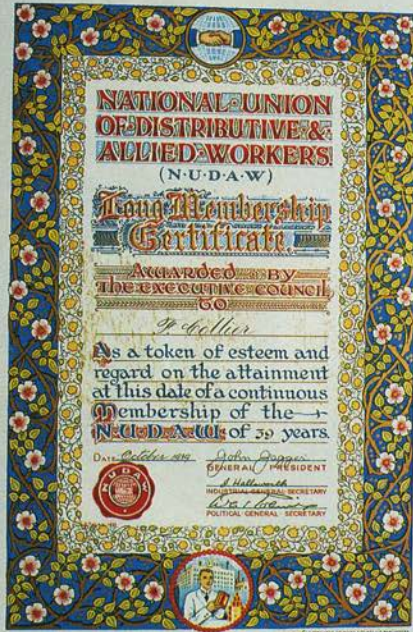 NATIONAL·UNION
OF·DISTRIBUTIVE·&
ALLIED·WORKERS.
(N·U·D·A·W)
Long Membership
Certificate.
AWARDED BY
THE EXECUTIVE COUNCIL
TO
Collier
As a token of esteem and
regard on the attainment
at this date of a continuous
Membership of the
N·U·D·A·W. of 39 years.
DATE October
John Jagger
GENERAL PRESIDENT
Hallsworth
INDUSTRIAL·GENERAL·SECRETARY
POLITICAL·GENERAL·SECRETARY
NUDAW